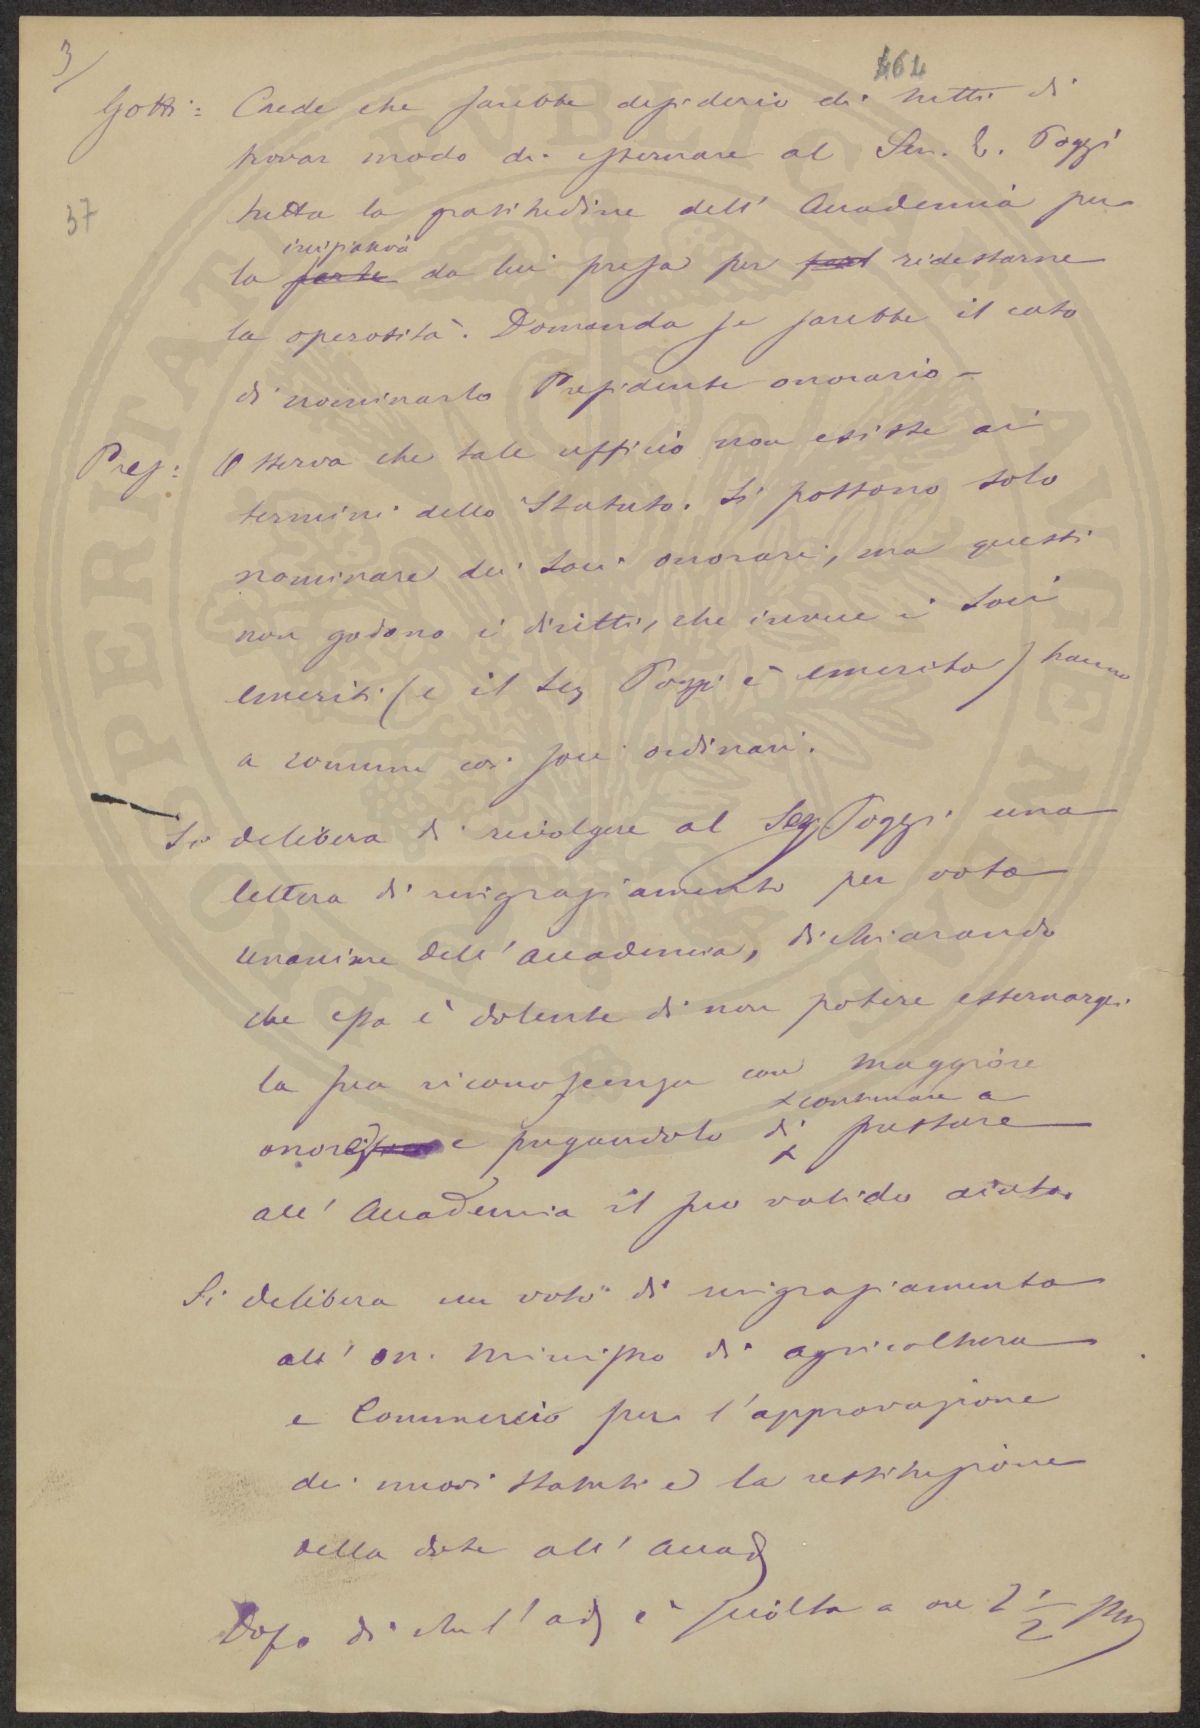 3/
464
Gotti: Crede che sarebbe desiderio di tutti di
trovar modo di esternare al Sen. E. Poggi
37
tutta la gratitudine dell' Accademia per
iniziativa
la parte da lui presa per ridestarne
la operosità. Domanda se sarebbe il caso
di nominarlo Presidente onorario –
Pres: Osserva che tale ufficio non esiste ai
termini dello Statuto. Si possono solo
nominare dei soci onorari, ma questi
non godono i diritti, che invece i soci
emeriti (e il Sen Poggi è emerito) hanno
a comune coi soci ordinari.
Si delibera di rivolgere al Sen Poggi una
lettera di ringraziamento per voto
unanime dell' accademia, dichiarando
che essa è dolente di non potere esternargli
la sua riconoscenza con maggiore
x continuare a
onore e pregandolo di x prestare
all' Accademia il suo valido aiuto.
Si delibera un voto di ringraziamento
all' on. Ministro di agricoltura
e Commercio per l'approvazione
dei nuovi statuti e la restituzione
della dote all' Accad
Dopo di che l' ad è sciolta a ore 2 1/2 pm
PROSPERITATI PUBLICAE AUGENDAE